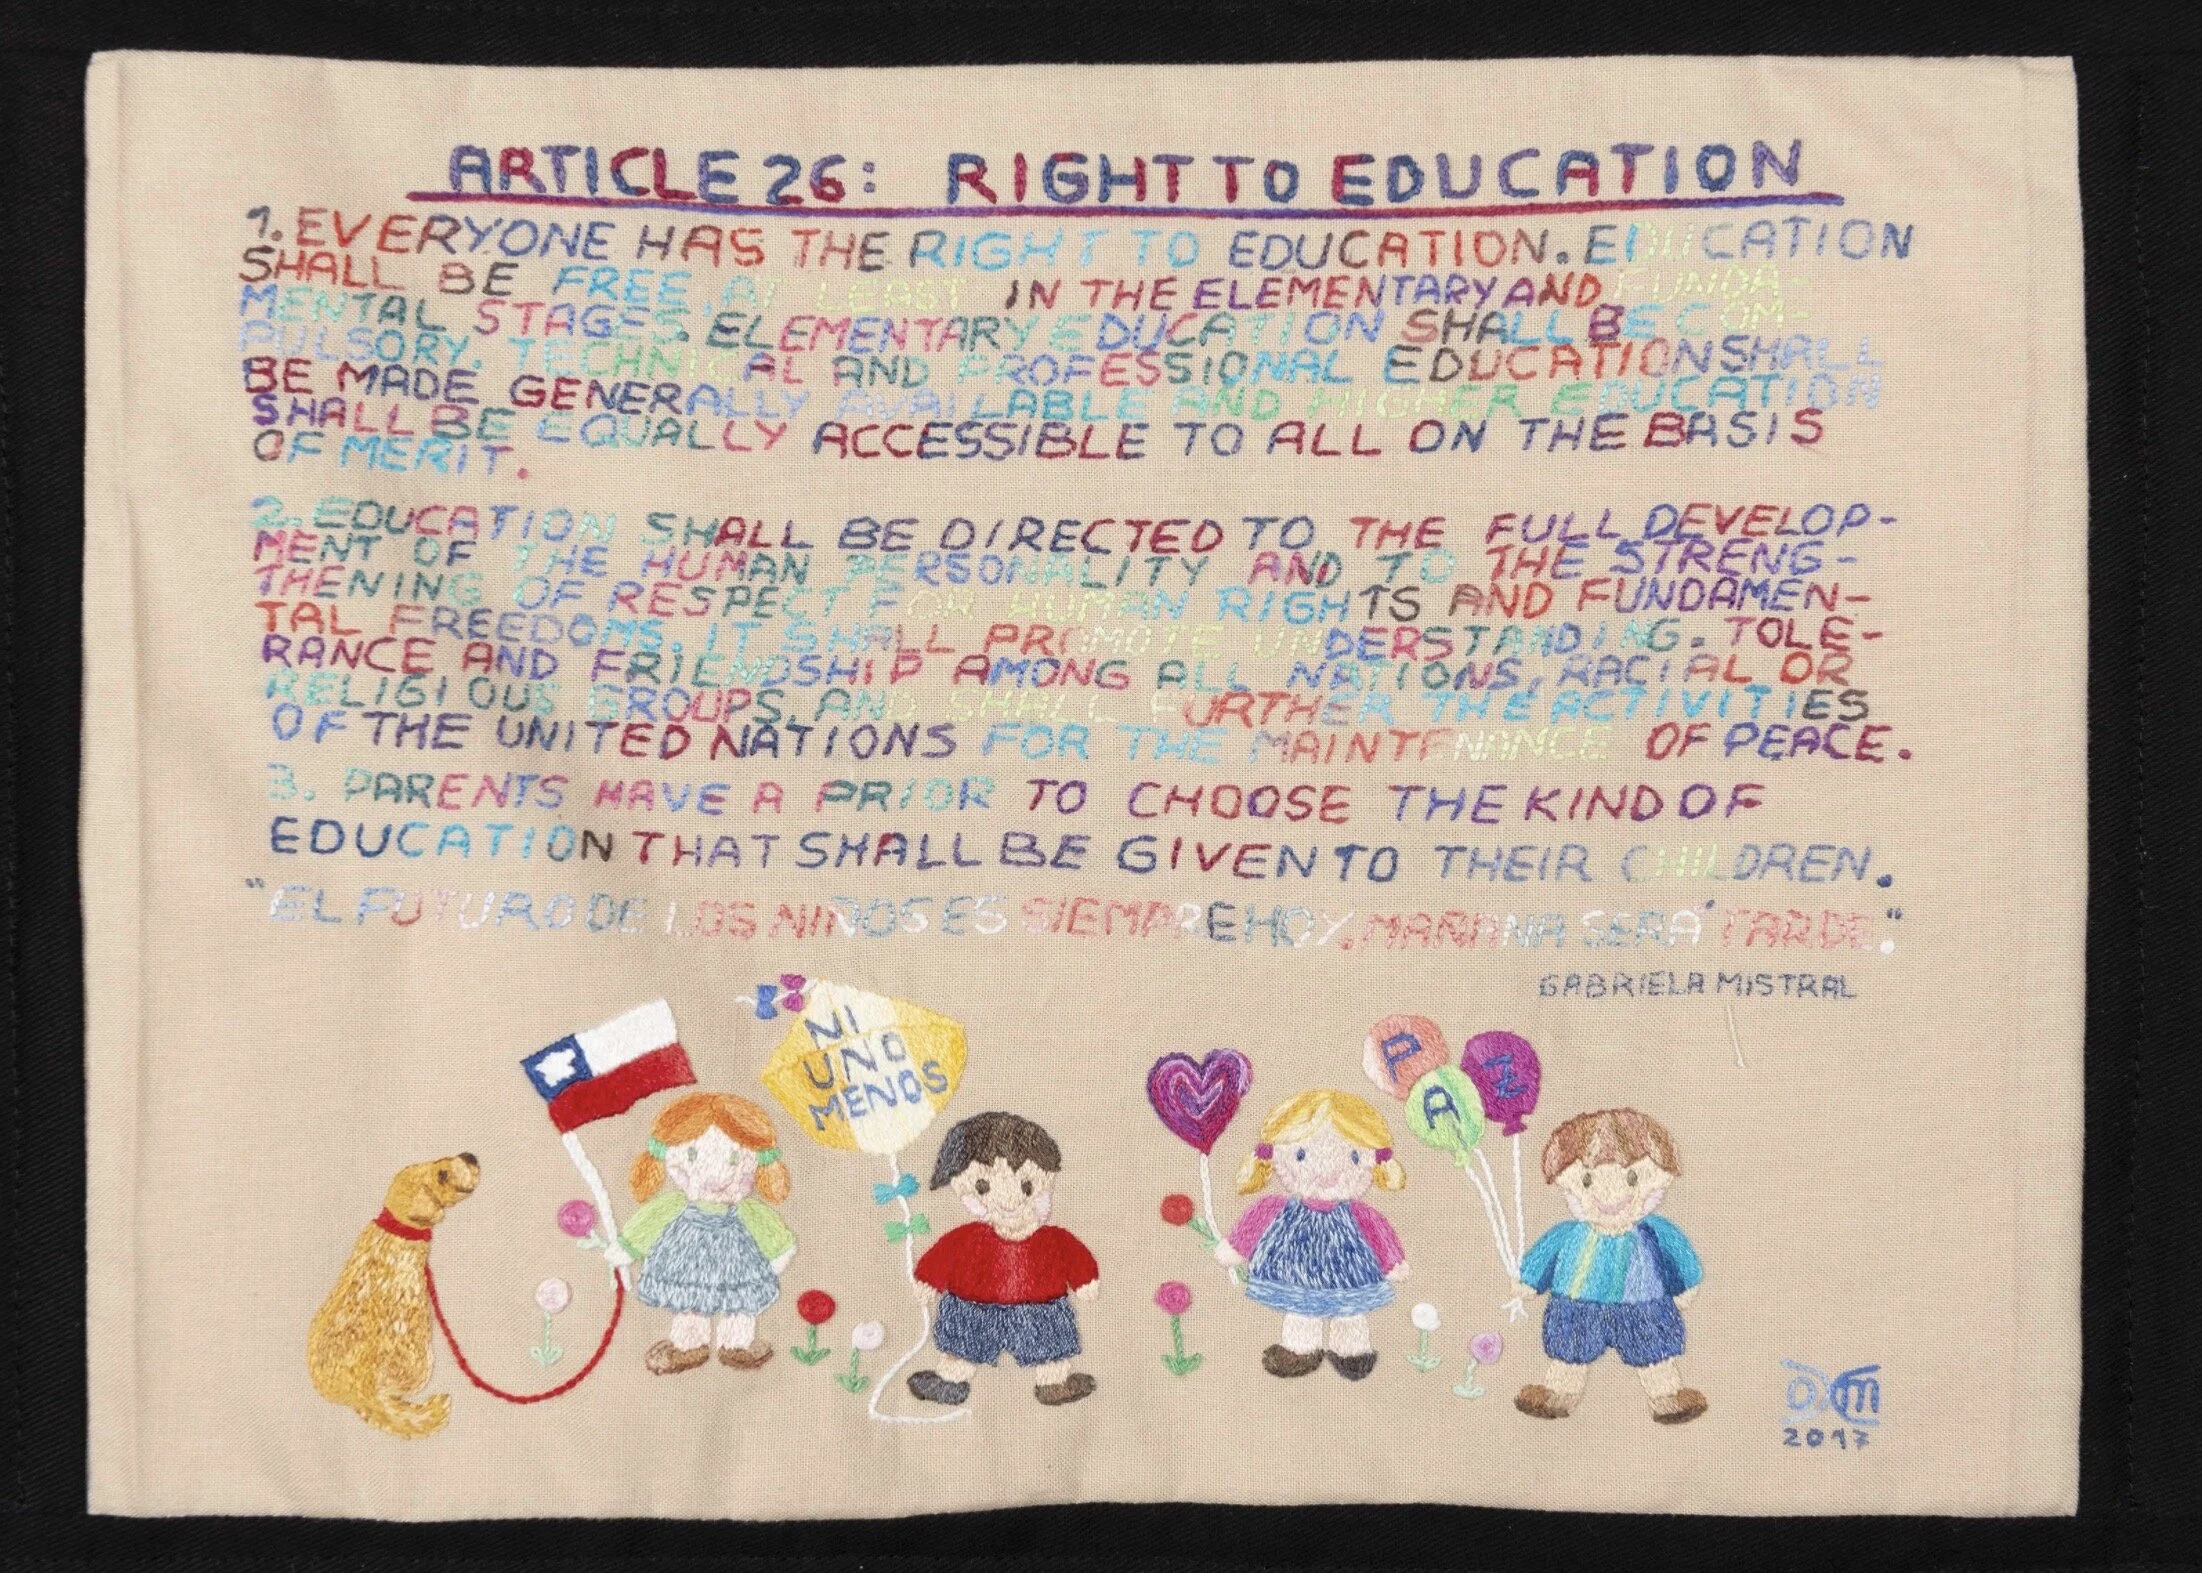 ARTICLE 26: RIGHT TO EDUCATION
1. EVERYONE HAS THE RIGHT TO EDUCATION. EDUCATION
SHALL BE FREE, AT LEAST IN THE ELEMENTARY AND FUNDA-
MENTAL STAGES. ELEMENTARY EDUCATION SHALL BE COM-
PULSORY. TECHNICAL AND PROFESSIONAL EDUCATION SHALL
BE MADE GENERALLY AVAILABLE AND HIGHER EDUCATION
SHALL BE EQUALLY ACCESSIBLE TO ALL ON THE BASIS
OF MERIT.
2. EDUCATION SHALL BE DIRECTED TO THE FULL DEVELOP-
MENT OF THE HUMAN PERSONALITY AND TO THE STRENG-
THENING OF RESPECT FOR HUMAN RIGHTS AND FUNDAMEN-
TAL FREEDOMS. IT SHALL PROMOTE UNDERSTANDING. TOLE-
RANCE AND FRIENDSHIP AMONG ALL NATIONS, RACIAL OR
RELIGIOUS GROUPS, AND SHALL FURTHER THE ACTIVITIES
OF THE UNITED NATIONS FOR THE MAINTENANCE OF PEACE.
3. PARENTS HAVE A PRIOR TO CHOOSE THE KIND OF
EDUCATION THAT SHALL BE GIVEN TO THEIR CHILDREN.
"EL FUTURO DE LOS NIÑOS ES SIEMPRE HOY. MAÑANA SERÁ TARDE."
GABRIELA MISTRAL
NI
UNO
MENOS
P
A
Z
DM
2017